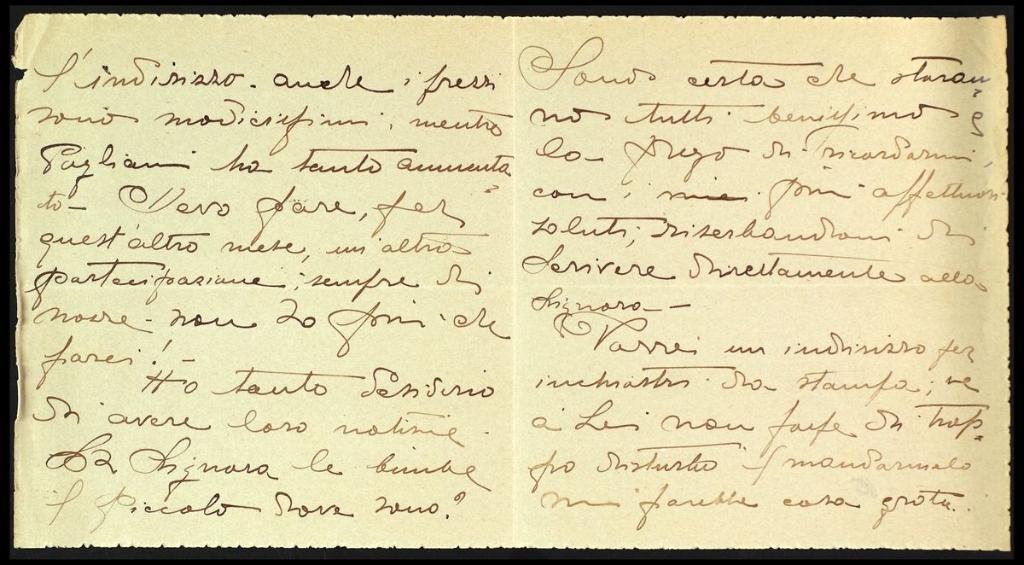 l'indirizzo. anche i prezzi
sono modicissimi, mentre
Pagliani ha tanto aumenta
to – Devo fare, per
quest'altro mese, un'altra
partecipazione, sempre di
nozze – non so più che
farci! –
Ho tanto desiderio
di avere loro notizie.
La Signora le bimbe
il Piccolo dove sono?
Sono certa che staran=
no tutti benissimo e
la prego di ricordarmi,
con i miei più affettuosi
saluti, riserbandomi di
scrivere direttamente alla
Signora –
Vorrei un indirizzo per
inchiostri da stampa, se
a Lei non fosse di trop=
po disturbo il mandarmelo
mi farebbe cosa grata.